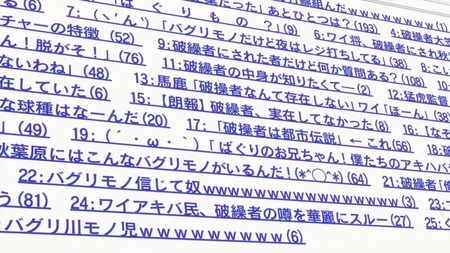 線組んだｗｗｗｗｗｗｗｗ(1)
る(6) 7:(ヽ´ん`)「バグリモノ?」(9) 葉だった」あとひとつは?(193) 4:破操者大
チャーの特徴 (52) ぐ り も の ?」(9) 6:ワイ将、破操者にされ秋
ん！脱がそ！」(76) 「バグリモノだけど夜はレジ打ちしてる」(38) 8:こ
ないわね」(48) 9:破操者にされた者だけど何か質問ある?(108) 10:
在していた(6) 11:破操者の中身が知りたくて―(2) 12:猛虎監督
な球種はなーんだ(20) 13:馬鹿「破操者なんて存在しない」ワイ「ほーん」(38)
」(49) 15:【朗報】破操者、実在してなかった(8) 16:「なぞ
19:（ ´ ・ ω ・ ｀）「 17:「破操者は都市伝説」 ← これ(56) 18:破
秋葉原にはこんなバグリモノがいるんだ！(*^○^*)(64) ばぐりのお兄ちゃん！僕たちのアキハバ
22:バグリモノ信じて奴ｗｗｗｗｗｗｗｗｗｗｗｗｗ(3) 21:破操者「
う(81) 24:ワイアキバ民、破操者の噂を華麗にスルー(27) 23:
:バグリ川モノ児ｗｗｗｗｗｗｗｗｗ(6) 25: